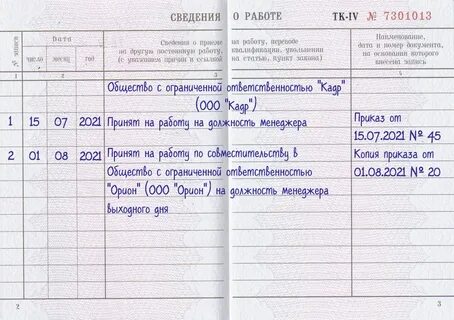 СВЕДЕНИЯ О РАБОТЕ ТК-IV № 7301013
№ записи
Дата
число месяц год
Сведения о приеме на работу, переводе
на другую постоянную работу, квалификации, увольнении
(с указанием причин и ссылкой на статью, пункт закона)
Наименование,
дата и номер документа,
на основании которого
внесена запись
1 2 3 4
Общество с ограниченной ответственностью "Кадр"
(ООО "Кадр")
1 15 07 2021 Принят на работу на должность менеджера Приказ от
15.07.2021 № 45
2 01 08 2021 Принят на работу по совместительству в Копия приказа от
Общество с ограниченной ответственностью 01.08.2021 № 20
"Орион" (ООО "Орион") на должность менеджера
выходного дня
2 3